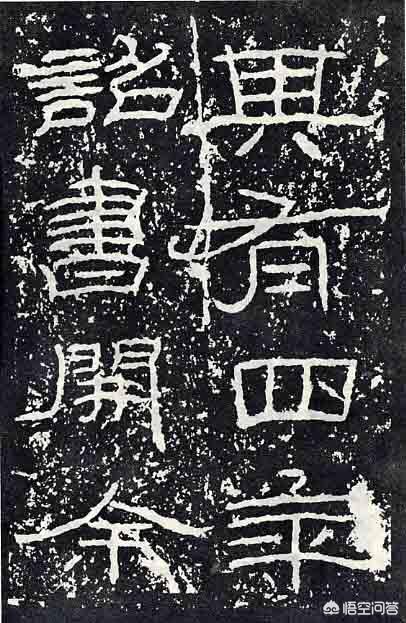 其有四年
詔書開余
悟空问答